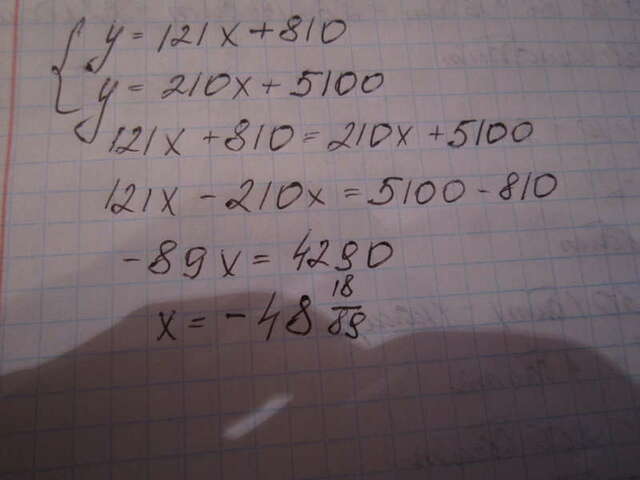 y = 121x + 810
y = 210x + 5100
121x + 810 = 210x + 5100
121x - 210x = 5100 - 810
-89x = 4290
x = -48 18/89